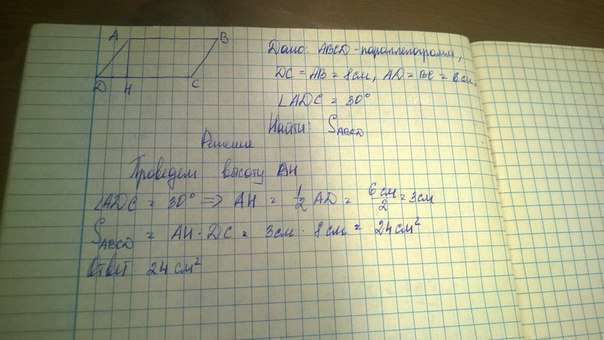 A B
D H C
Дано: ABCD - параллелограмм,
DC = AB = 8 см, AD = BC = 6 см,
∠ADC = 30°
Найти: S_ABCD
Решение
Проведем высоту AH
∠ADC = 30° => AH = 1/2 AD = 6 см/2 = 3 см
S_ABCD = AH · DC = 3 см · 8 см = 24 см²
Ответ 24 см²